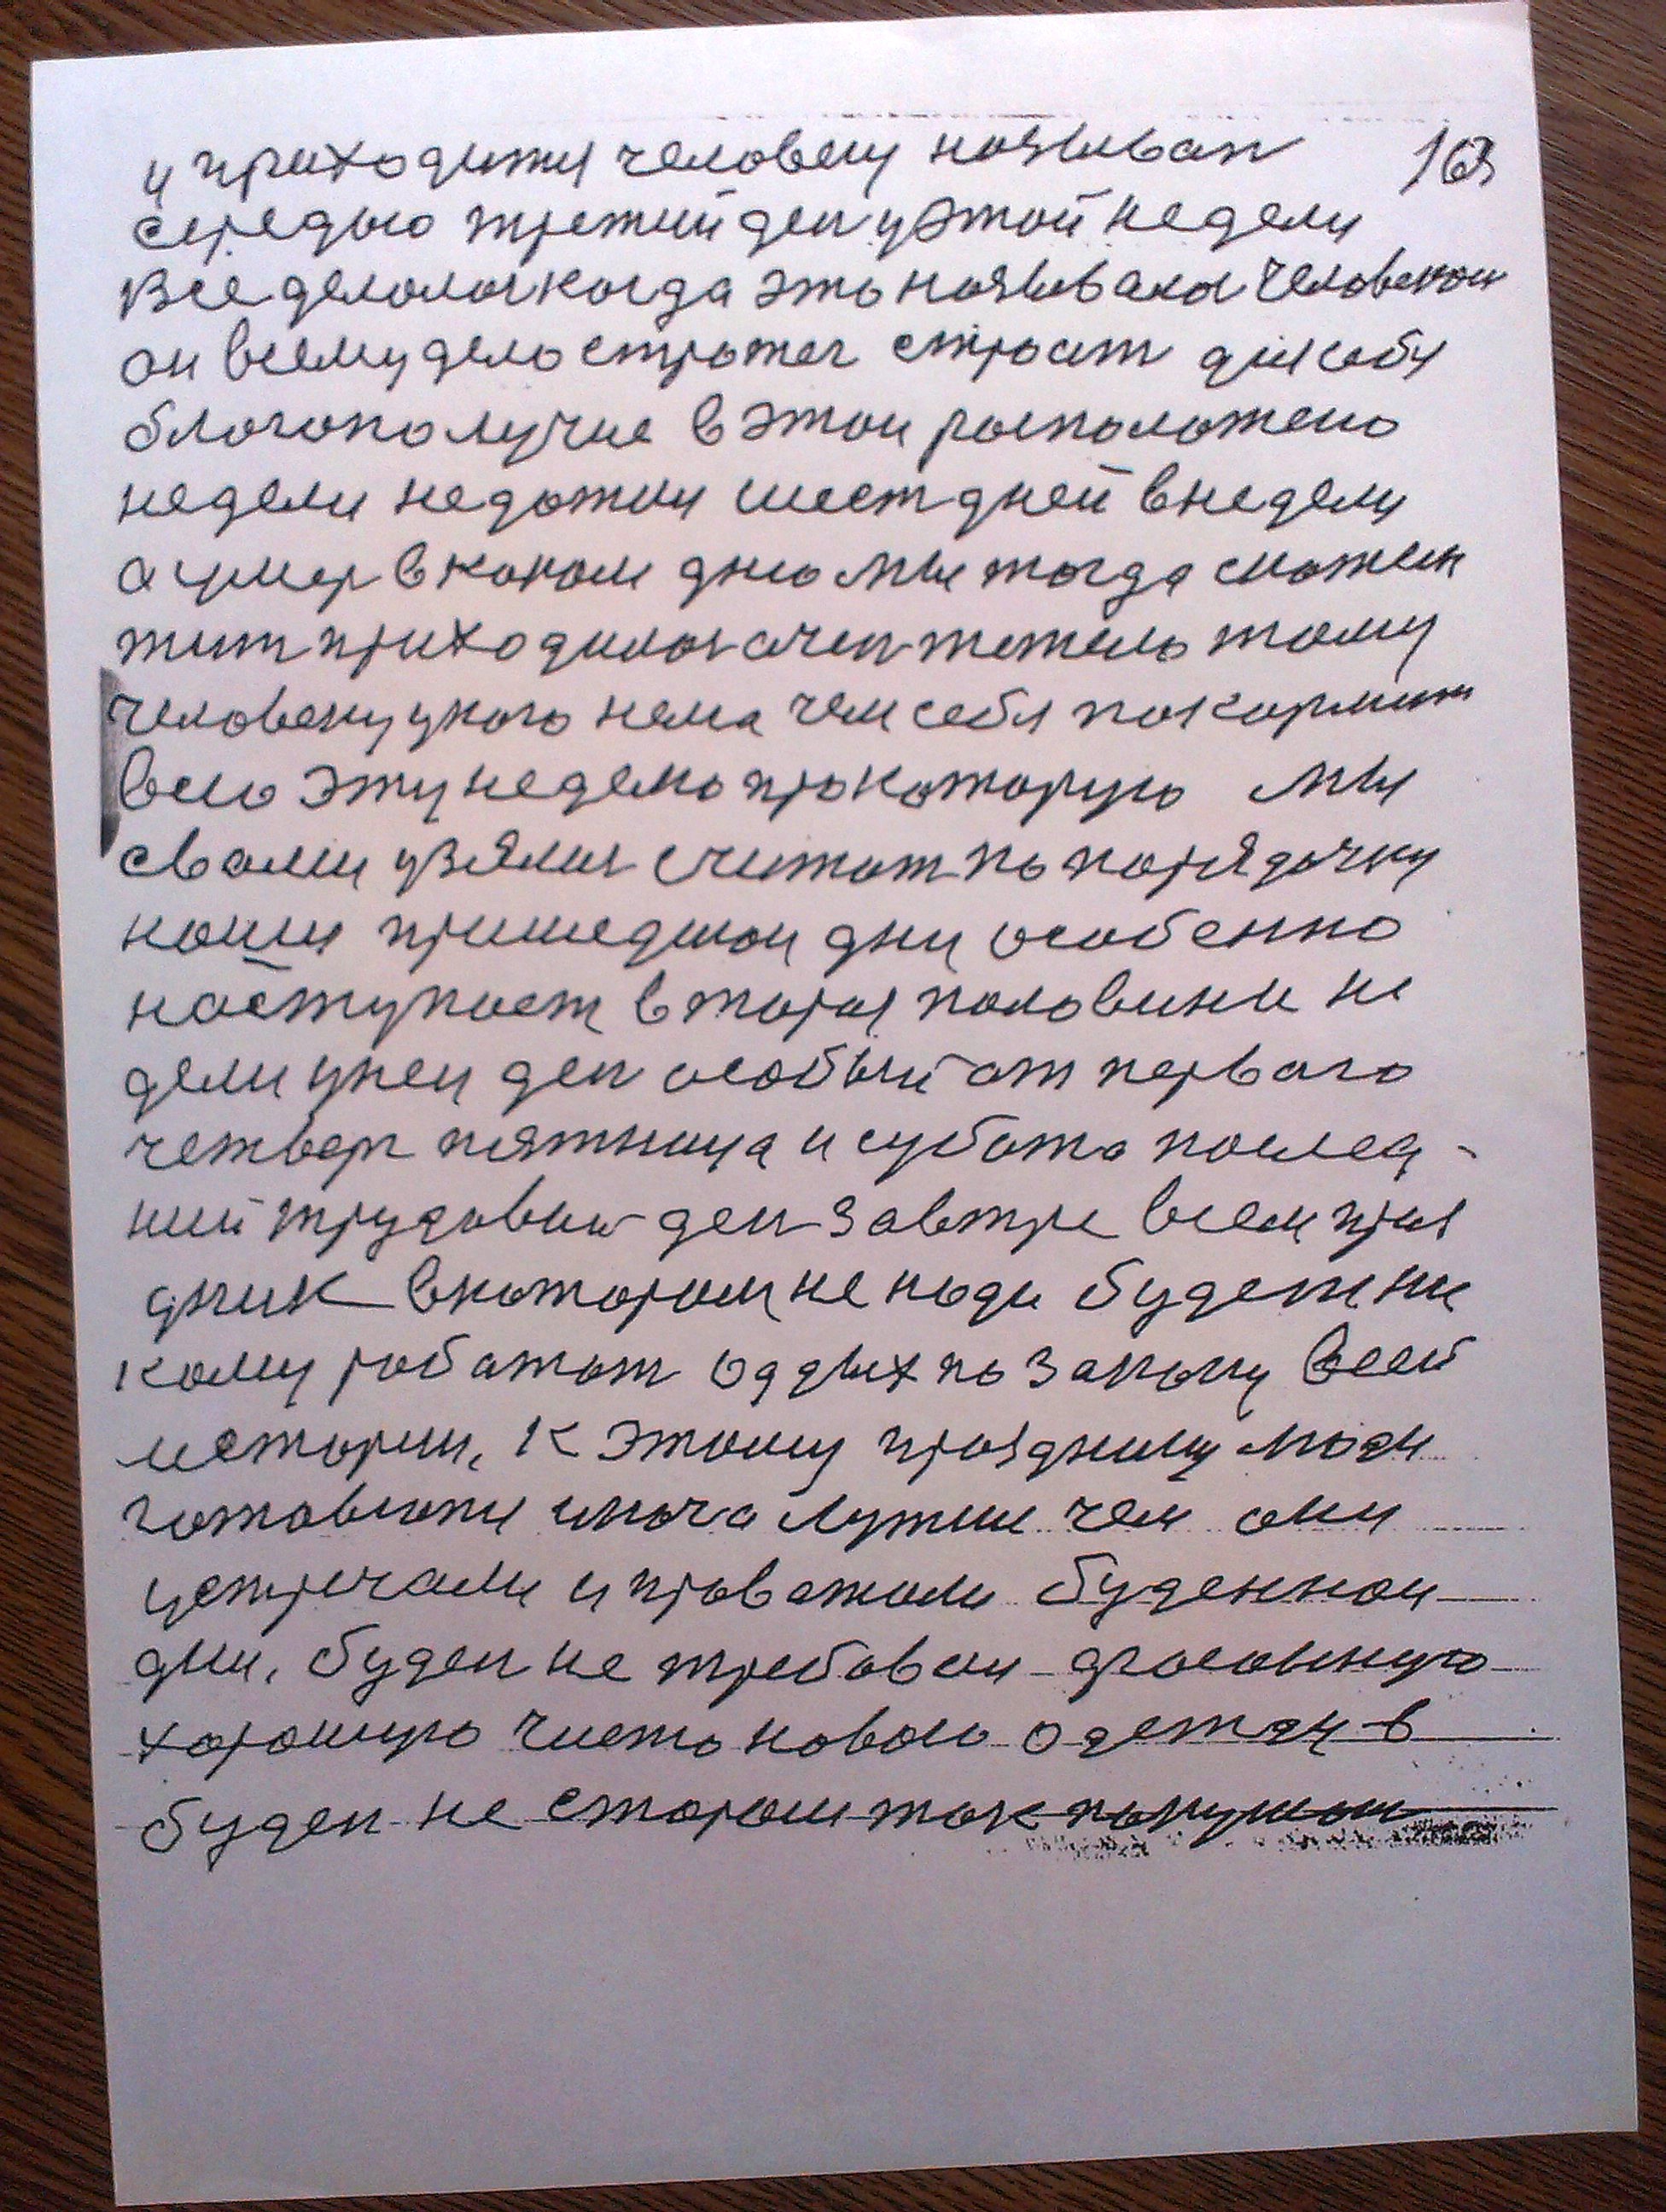 и приходится человеку называт 163
середою третий ден у этой недели
Все делолос когда это называлос человеком
он всему дело строжег строит для себя
благополучие в этои росположено
недели недожит шест дней в недели
а умер в каком дню мы тогда сможем
жит приходилос очен тежело тому
человеку у кого нема чем себя покормит
всю эту неделю про которую мы
свами узялис считат по порядочку
наши пришедшои дни особенно
наступает вторая половини не
дели у неи ден особый от первого
четверг пятница и субота послед-
ний трудовый ден завтре всем праз
дник в котором не поди будет ни
кому роботат оддых по закону всей
истории. К этому празднику люди
готовются иначе лутши чем они
устречали и проважали буденнои
дни. буден не требовал драгоценную
хорошую чисто новою одежду в
буден не старом так